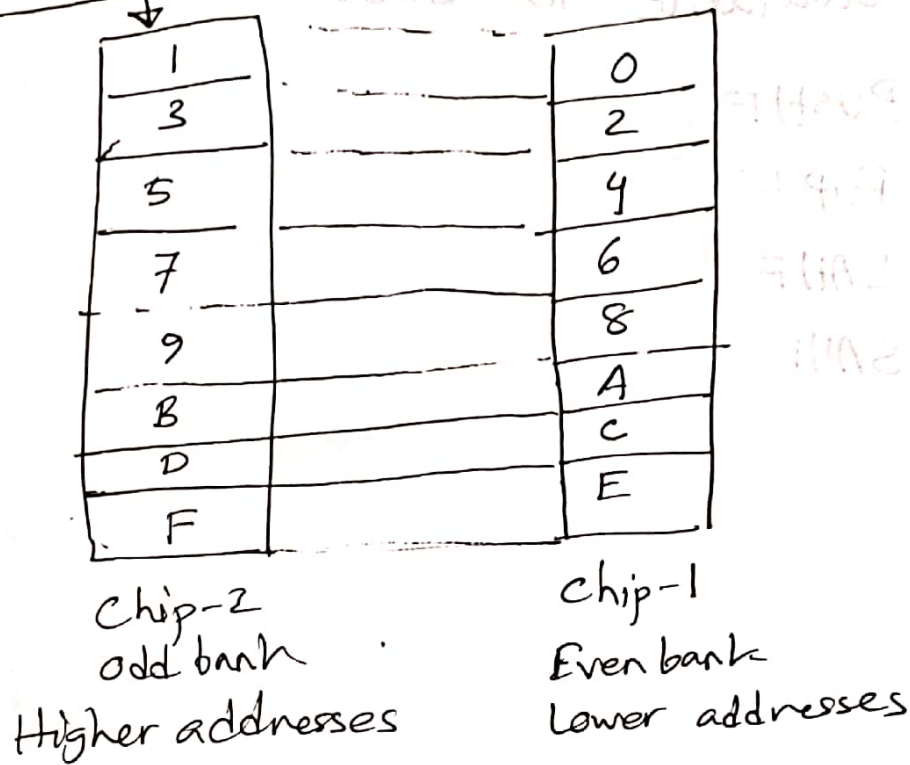 1
3
5
7
9
B
D
F
Chip-2
odd bank
Higher addresses
0
2
4
6
8
A
C
E
Chip-1
Even bank
Lower addresses